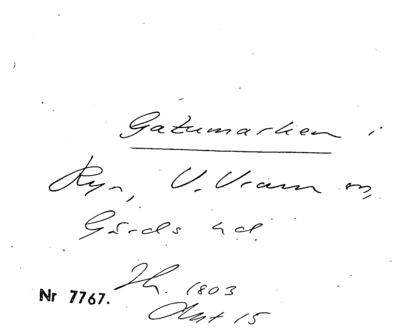 Gatumarken i
Ryr, V. Vram sn,
Gärds hd.
Nr 7767.
Th. 1803
Akt 15